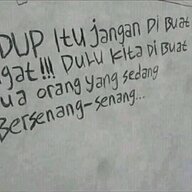 DUP ITu jangan Di BuaT
gaT!!! DuLu KiTa Di BuaT
ua orang yang sedang
Bersenang-senang...